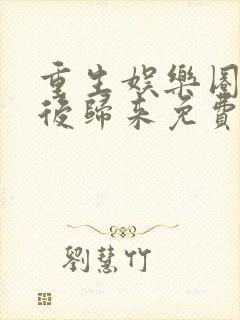 重生娛樂圈
後歸來免費
劉慧竹